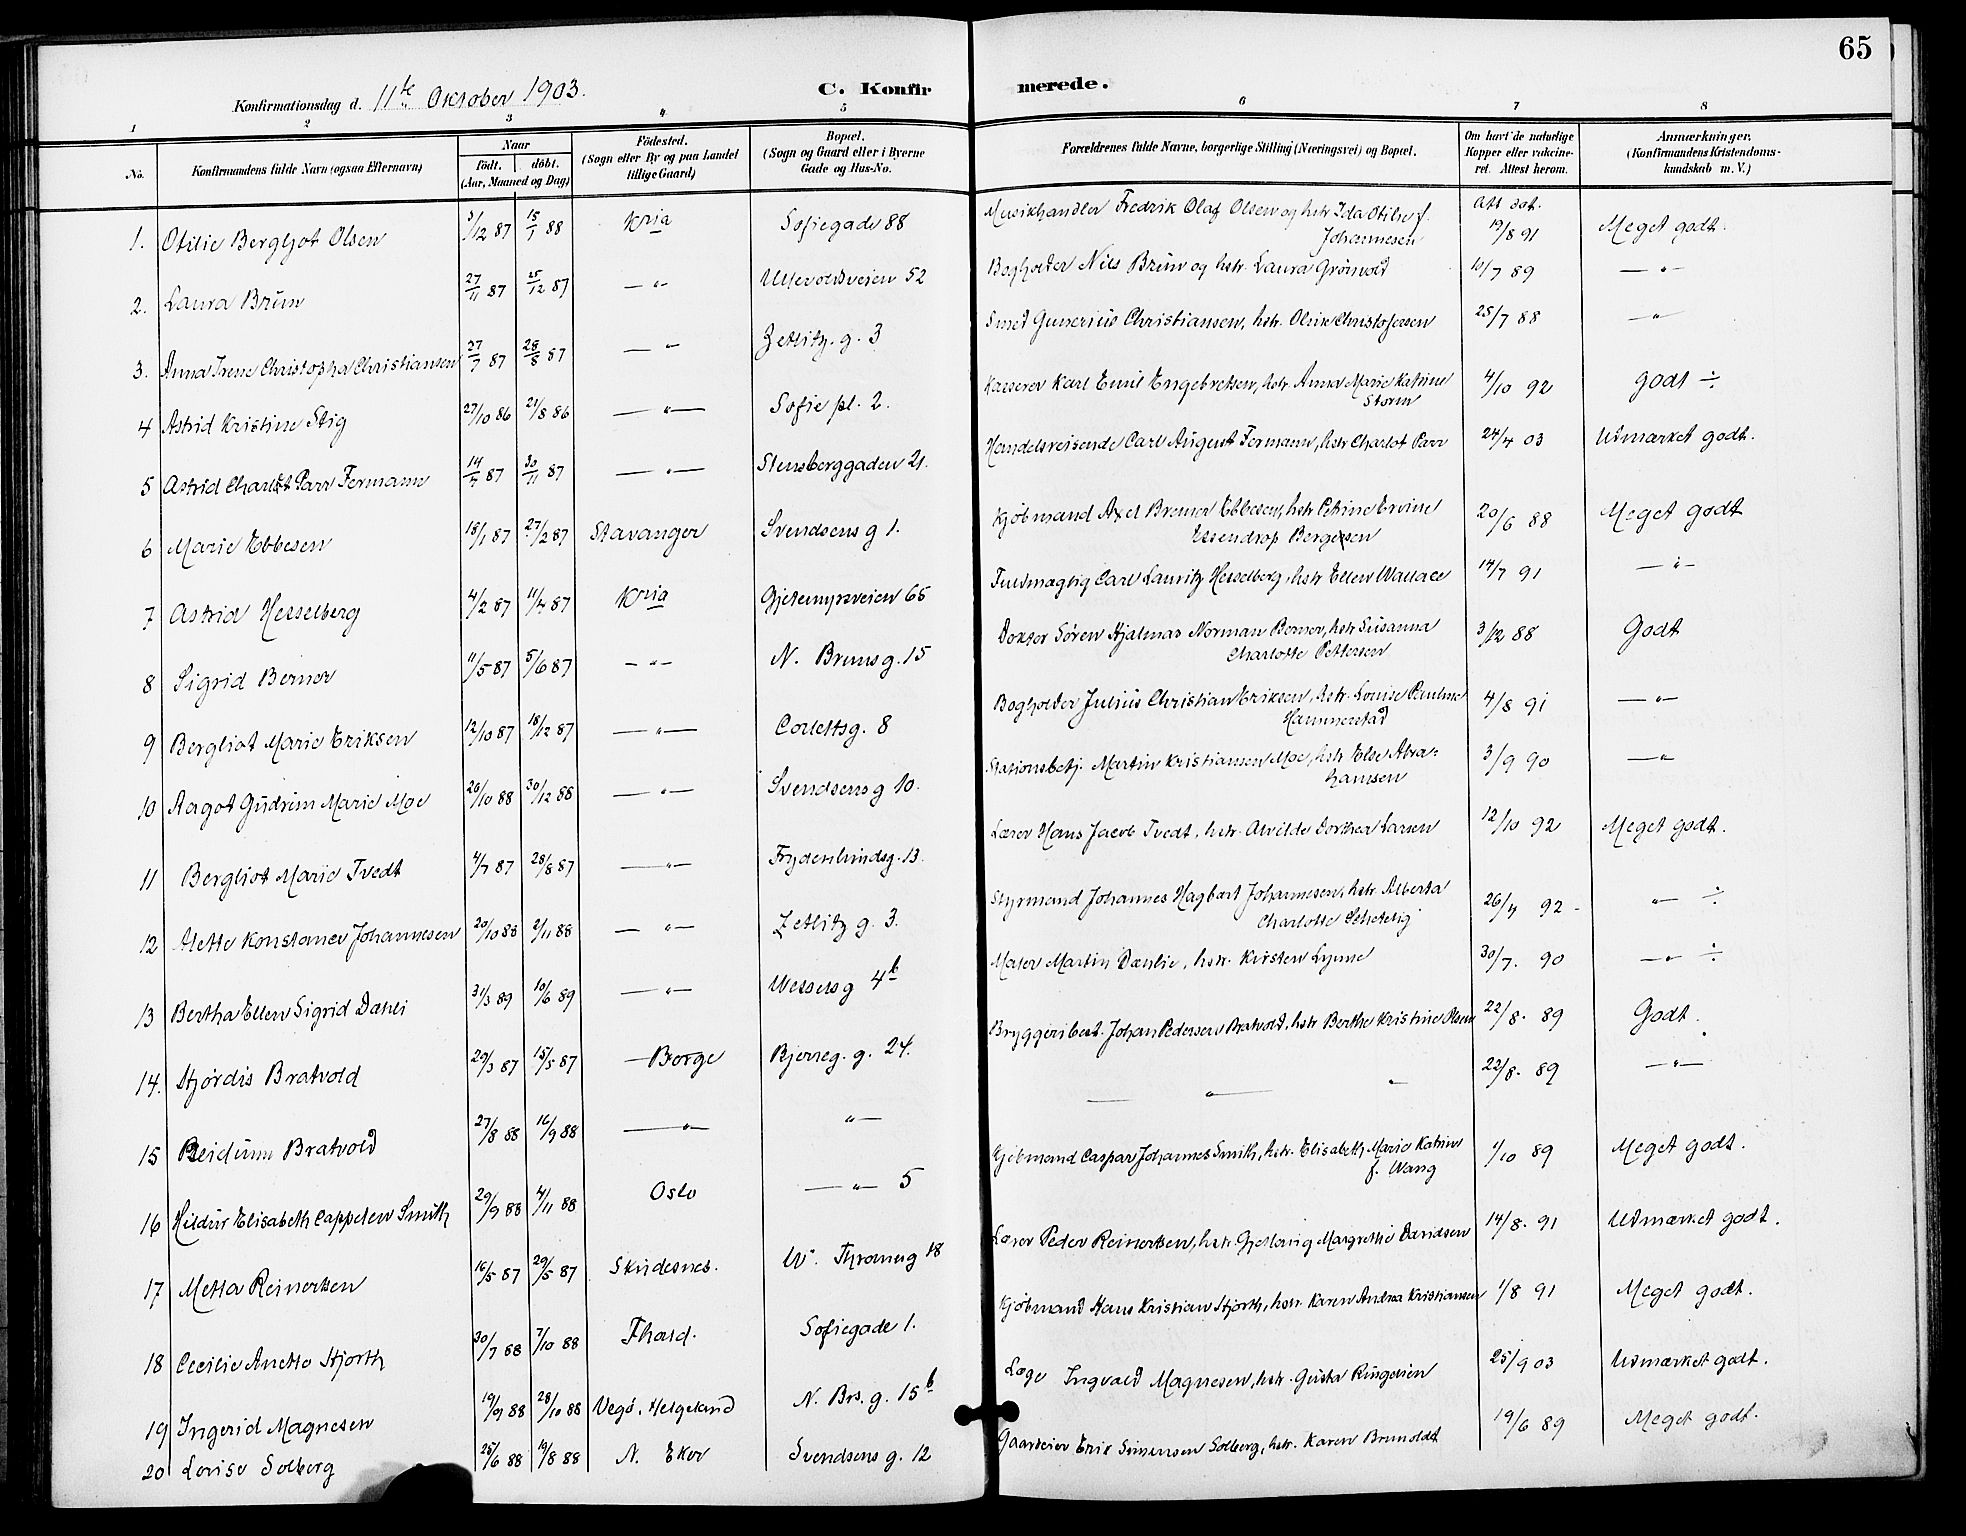 65
Konfirmationsdag d. 11te Oktober 1903.
C. Konfirmerede.
1 2 3 4 5 6 7 8
No.
Konfirmandens fulde Navn (ogsaa Efternavn)
Naar
født. døbt.
(Aar, Maaned og Dag)
Fødested.
(Sogn eller By og paa Landet
tillige Gaard)
Bopæl.
(Sogn og Gaard eller i Byerne
Gade og Hus-No.
Forældrenes fulde Navne, borgerlige Stilling (Næringsvei) og Bopæl.
Om havt de naturlige
Kopper eller vaksine-
ret. Attest herom.
Anmærkninger.
(Konfirmandens Kristendoms-
kundskab m. V.)
1. Otilie Bergljot Olsen 3/12 87 15/1 88 Kria Sofiegade 88 Musikhandler Fredrik Olaf Olsen og hstr Ida Otilie f. Johannesen Att dat. 19/8 91 Meget godt.
2. Laura Brun 27/11 87 25/12 87 —"— Ullevoldsveien 52 Bogholder Nils Brun og hstr. Laura Grønvold 10/7 89 —"—
3. Anna Irene Christopha Christiansen 27/7 87 28/8 87 —"— Zetlitz. g. 3 Smed Gunerius Christiansen, hstr. Oline Christofersen 25/7 88 —"—
4 Astrid Kristine Stig 27/10 86 21/8 86 —"— Sofie pl. 2. Kasserer Karl Emil Engebretsen, hstr Anna Marie Katrine Storm 4/10 92 godt ÷
5 Astrid Charlot Parr Fermann 14/7 87 30/11 87 —"— Stensberggaden 21. Handelsreisende Carl August Fermann, hstr Charlot Parr 24/4 03 Udmærket godt.
6 Marie Ebbesen 18/1 87 27/2 87 Stavanger Svendsens g 1. Kjøbmand Axel Bremer Ebbesen, hstr Petrine Ervine Essendrop Bergesen 20/6 88 Meget godt
7 Astrid Hesselberg 4/2 87 11/4 87 Kria Gjetemyrsveien 65 Fuldmægtig Carl Lauritz Hesselberg, hstr Ellen Wallace 14/7 91 —"—
8 Sigrid Berner 11/5 87 5/6 87 —"— N. Bruns g. 15 Doktor Søren Hjalmar Norman Berner, hstr Susanna Charlotte Pettersen 3/12 88 Godt
9 Bergliot Marie Eriksen 12/10 87 18/12 87 —"— Colletts g. 8 Bogholder Julius Christian Eriksen, hstr. Louise Pauline Hammerstad 4/8 91 —"—
10 Aagot Gudrun Marie Moe 26/10 88 30/12 88 —"— Svendsens g 10. Stationsbetj. Martin Kristiansen Moe, hstr Else Abra-hamsen 3/9 90 —"—
11 Bergliot Marie Tvedt 4/7 87 28/8 87 —"— Frydenlundsg. 13. Lærer Hans Jacob Tvedt, hstr. Alvilde Dorthea Larsen 12/10 92 Meget godt.
12 Alette Konstance Johannesen 20/10 88 2/11 88 —"— Zetlitz g. 3. Styrmand Johannes Hagbart Johannesen, hstr. Alberta Charlotte Schetelig 26/4 92 —"— ÷
13 Bertha Ellen Sigrid Dæhli 31/3 89 10/6 89 —"— Wessels g 4b Maler Martin Dæhlie, hstr. Kirsten Lynne 30/7. 90 —"— ÷
14. Hjørdis Bratvold 29/3 87 15/5 87 —Borge Bjerreg. g. 24. Bryggeribest. Johan Pedersen Bratvold, hstr Berthe Kristine Olsen 22/8. 89 Godt.
15 Reidunn Bratvold 27/8 88 16/9 88 —"— "— —"— " 22/8. 89 —"—
16 Hildur Elisabeth Cappelen Smith 29/9 88 4/11 88 Oslo —"— 5 Kjøbmand Caspar Johannes Smith, hstr. Elisabeth Marie Katrine f. Wang 1/10 89 Meget godt.
17 Metta Reinertsen 16/5 87 29/5 87 Skudesnes. W. Thranes g 18 Lærer Peder Reinertsen, hstr. Gjertine Margrethe Davidsen 14/8. 91 Udmærket godt.
18 Cecilie Anette Hjorth 30/7 88 7/10 88 Fhald. Sofiegade 1. Kjøbmand Hans Kristian Hjorth, hstr. Karen Andrea Kristiansen 1/8 91 Meget godt.
19 Ingerid Magnesen 19/9 88 28/10 88 Vegø, Helgeland N. Brs. g. 15b Læge Ingvald Magnesen, hstr. Gusta Ringdien 25/9 03 Udmærket godt.
20 Lovise Solberg 25/6 88 19/8 88 N. Eker Svendsens g. 12 Gaardeier Erik Simensen Solberg, hstr. Karen Brunoldt 19/6 89 Meget godt.